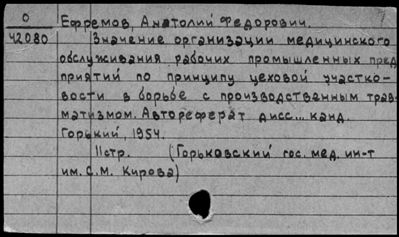 О Ефремов, Анатолий Федорович.
42080 Значение организации медицинского
обслуживания рабочих промышленных пред
приятий по принципу цеховой участко-
вости в борьбе с производственным трав-
матизмом. Автореферат дисс... канд.
Горький, 1954.
11стр. (Горьковский гос. мед. ин-т
им. С.М. Кирова)